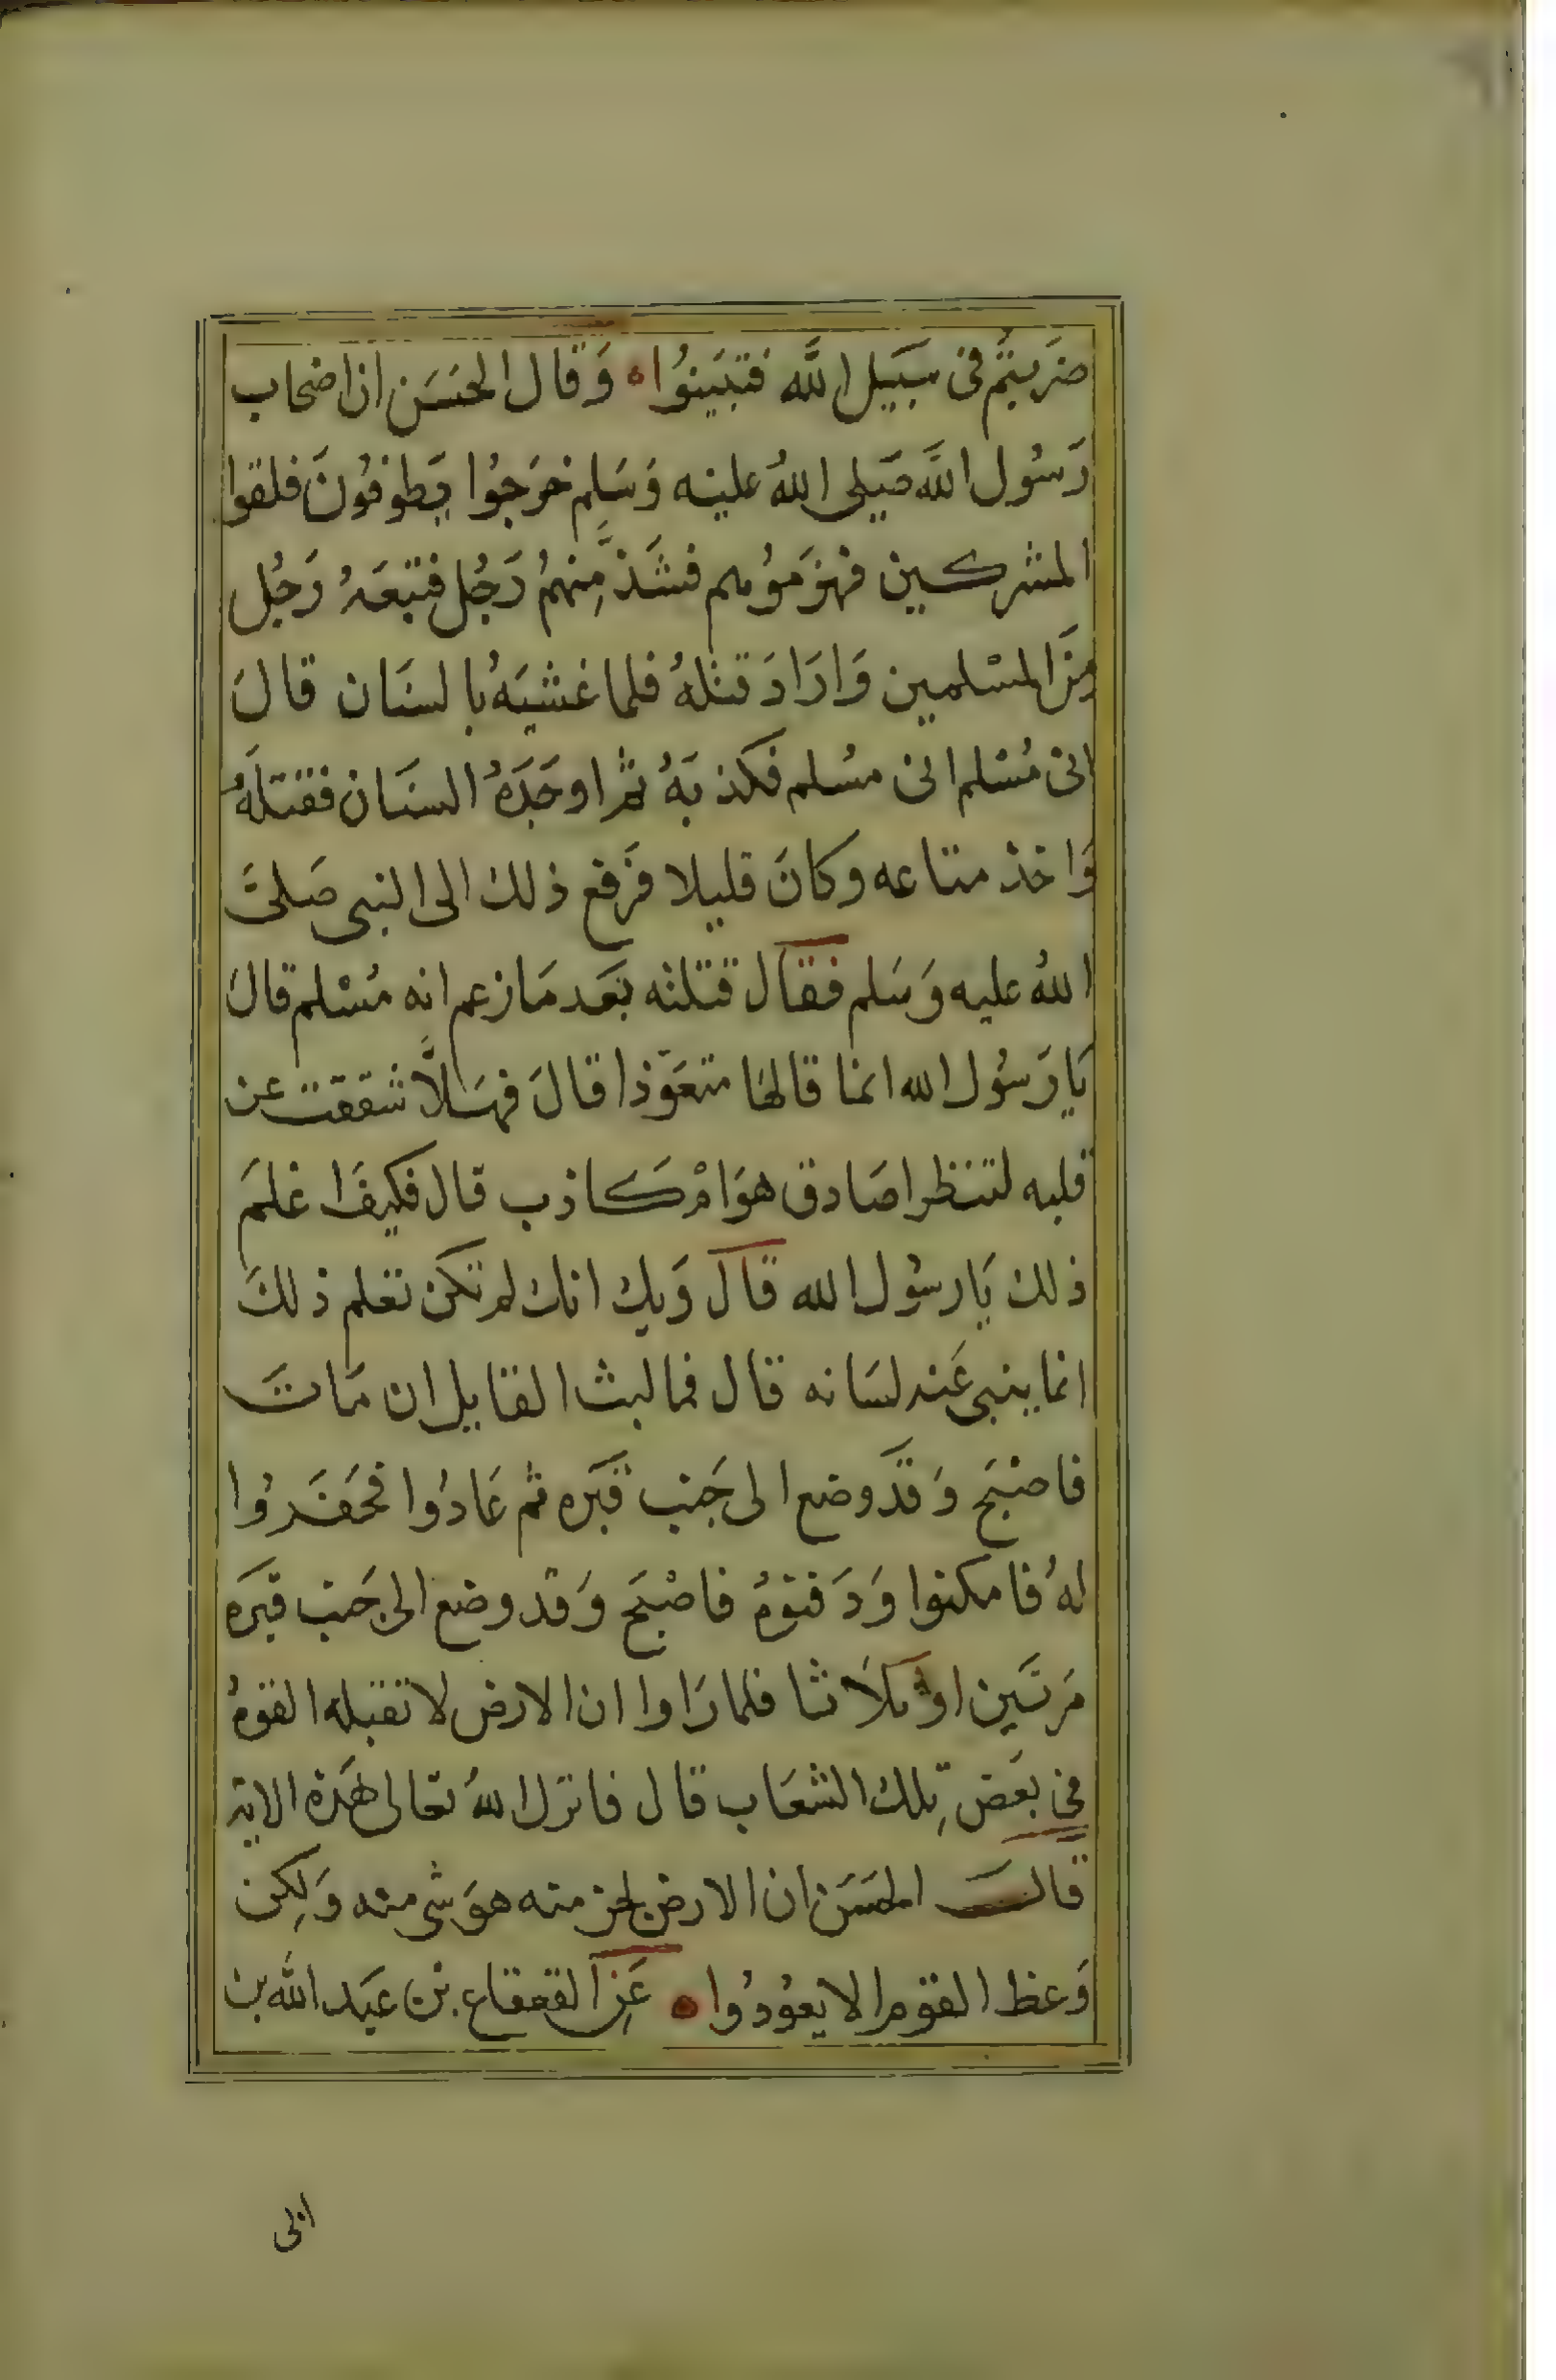 ضَربتُم فى سَبيل الله فتبَينُوا ه وَقال الحسَن ان اصحاب
رَسُول الله صَلى اللهُ عليه وَسَلم خرَجُوا يَطوفُونَ فلقوا
المشركين فهزمَوُهم فشَذ مِنهمُ رَجُل فتبعَهُ رَجُل
مِنَ المسْلمين وَارَادَ قتلهُ فلما غشيَهُ بالسنَان قالَ
انى مُسْلم انى مسُلم فكذبَهُ ثم اوجَرَهُ السنَان فقتلهُ
وَاخذ متاعه وكانَ قليلا فرَفع ذلك الى النبى صَلىَّ
اللهُ عليه وَسَلم فقال قتلته بَعَد مَا زعم انه مُسْلم قال
يَا رَسُول الله انما قالهَا متعَوّذا قالَ فهَلاَّ شققت عن
قلبه لتنظر اصَادق هوَ امْ كاذب قال فكيفَ اعْلمَ
ذلك يَا رسُول الله قال وَيك انك لم تكن تعلم ذلكَ
انما ينبى عَنه لسَانه قال فما لبث القايل ان مَاتَ
فاصْبَح وَقَد وضع الى جَنب قبَره ثم عَادُوا فحَفَرُوا
لهُ فامكنوا وَدَفنوهُ فاصْبَح وَقد وضع الى جَنب قبرَه
مَرتَين اوْ ثلاَثا فلما رَاوا ان الارض لا تقبله القوهُ
فى بَعض تِلك الشعَاب قال فانزل اللهُ تعَالى هَذه الاية
قالَ الحسَن ان الارض لتجن منه هوَ شى منه وَلكِن
وَعظ القوم الا يعوُدُوا ه عَنِ القعقاع بن عَبَد الله بن
ابى